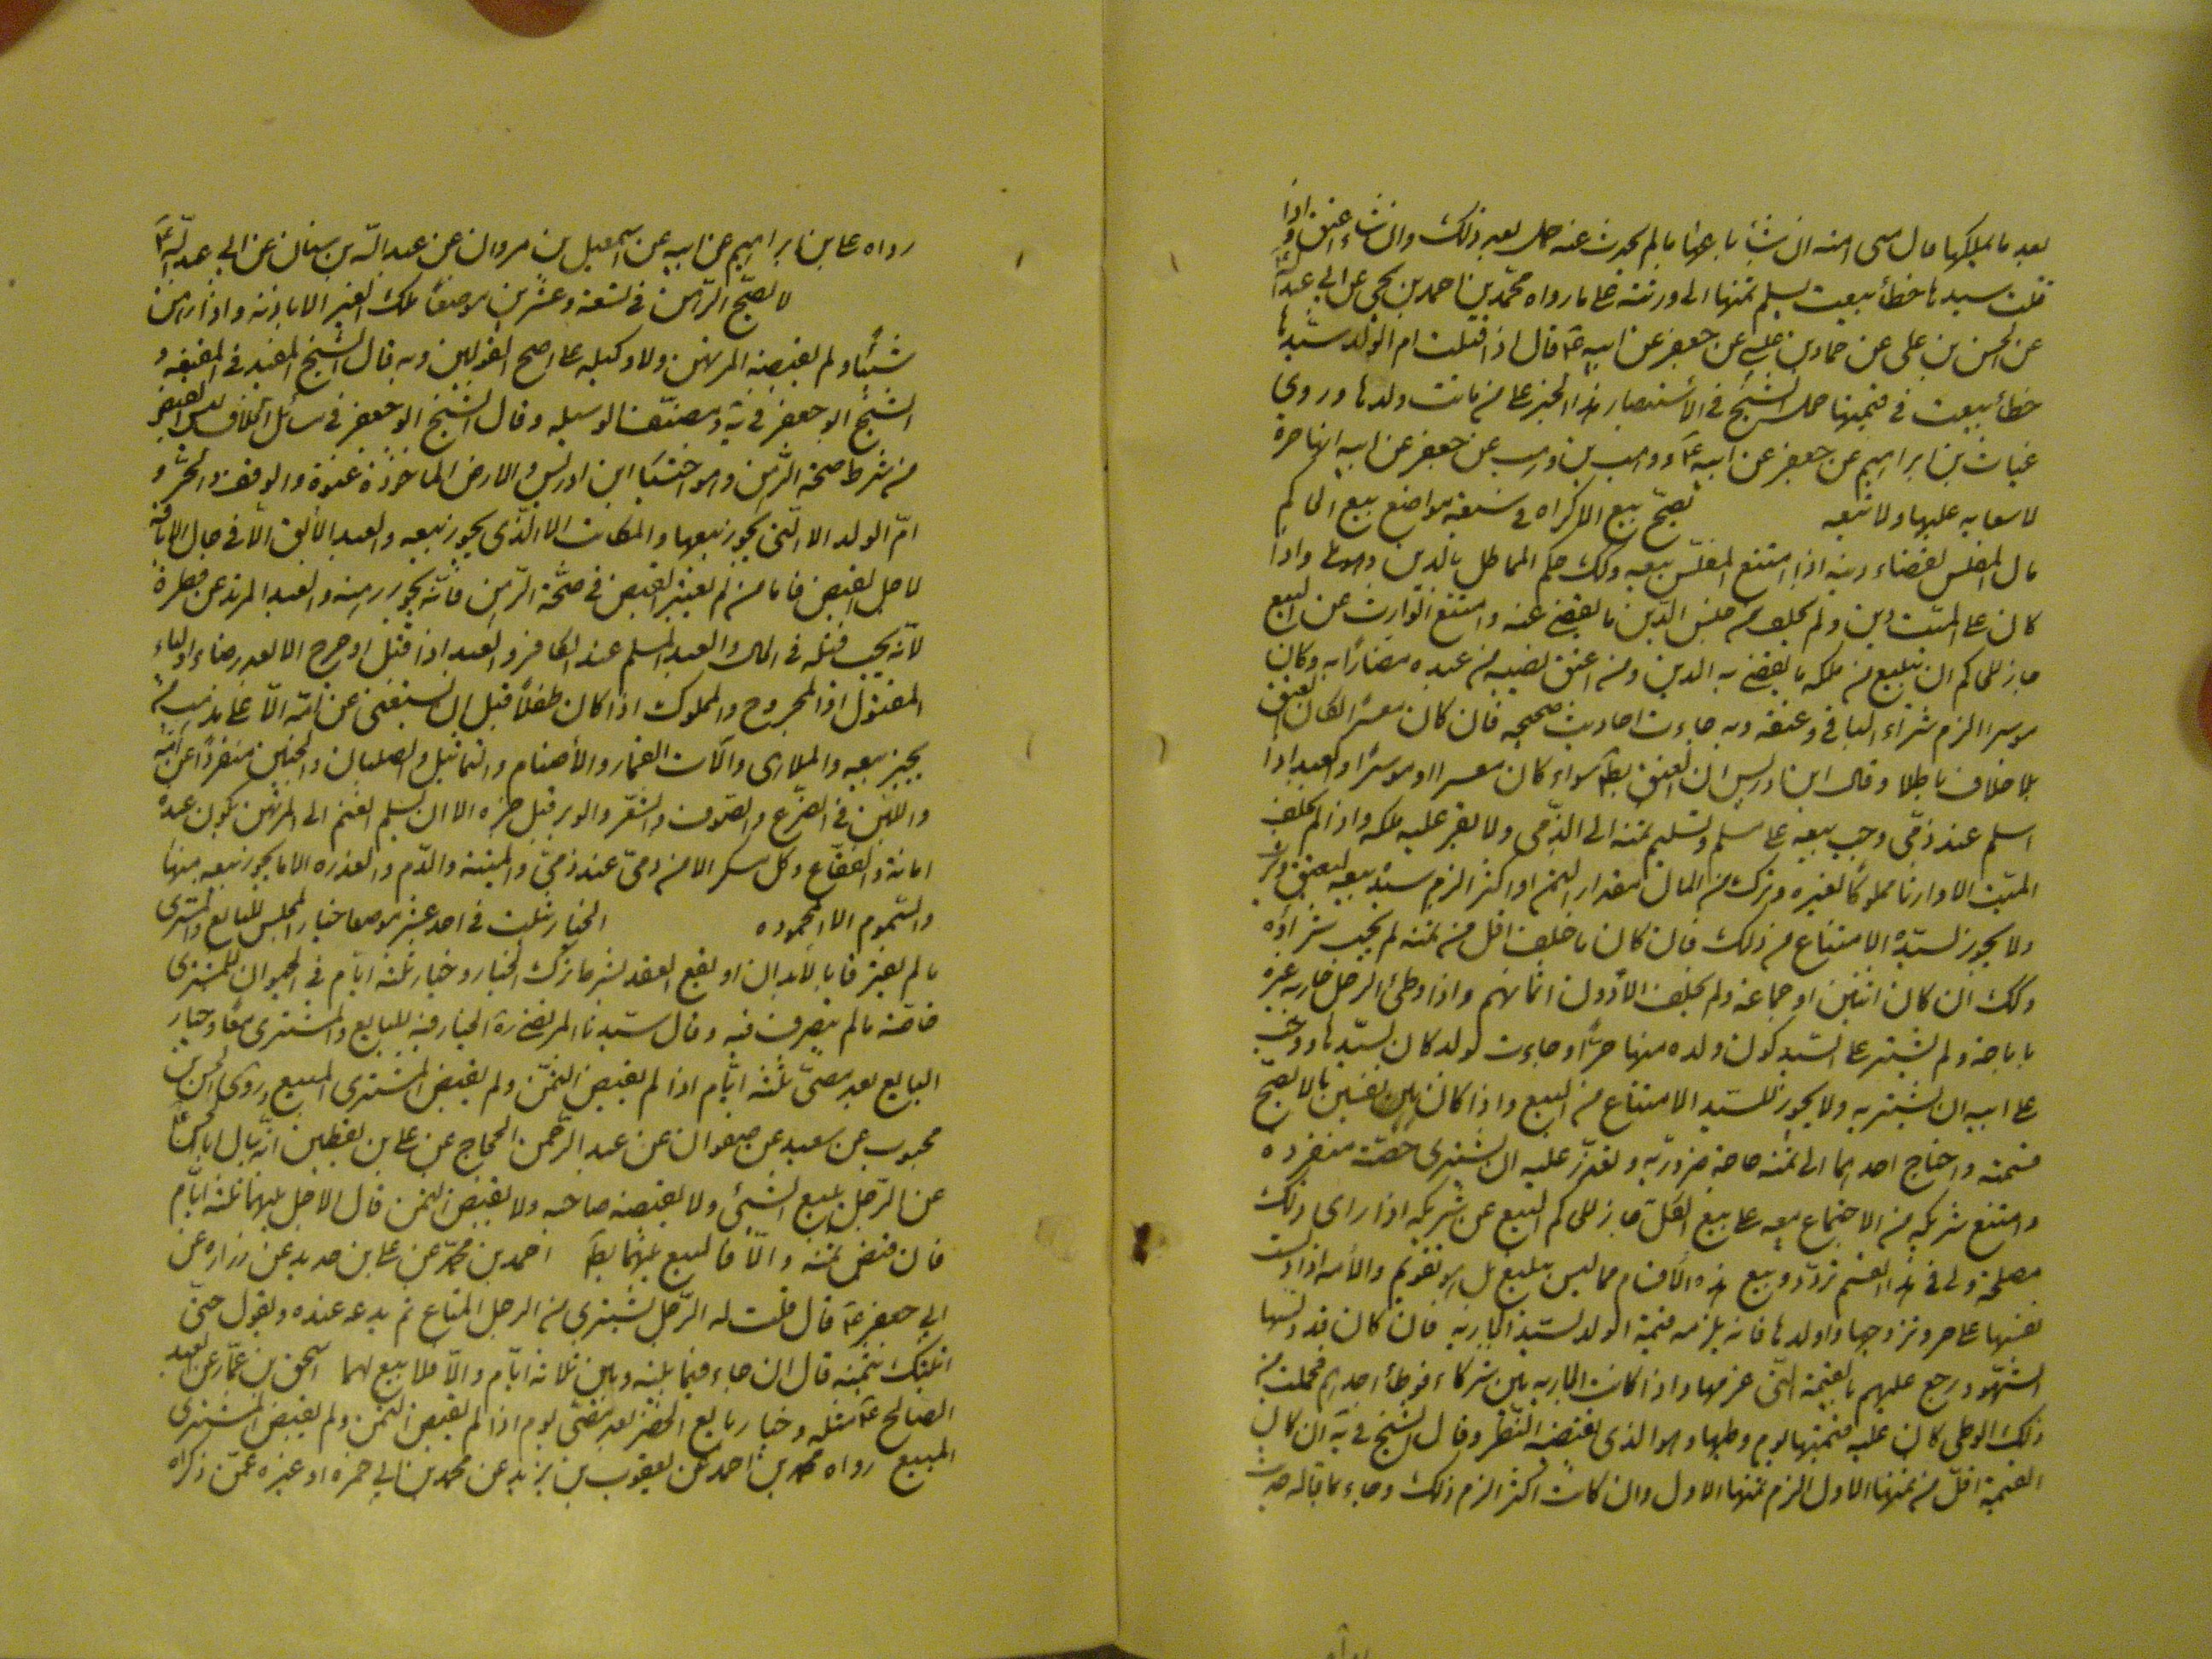 بعد ما يملكها قال هي امته ان شاء باعها ما لم يحدث عنه حمل بعد ذلك وان شاء اعتق واذا
قتلت سيدها خطأ بيعت يسلم ثمنها الى ورثته على ما رواه محمد بن احمد بن يحيى عن ابي عبد الله
عن الحسن بن علي عن حماد بن عيسى عن جعفر عن ابيه ع قال اذا قتلت ام الولد سيدها
خطأ بيعت في قيمتها حمل الشيخ في الاستبصار هذا الخبر على من مات ولدها وروى
غياث بن ابراهيم عن جعفر عن ابيه ع ووهب بن وهب عن جعفر عن ابيه انها حرة
لا سعاية عليها ولا تبعه يصح بيع الاكراه في سبعة مواضع بيع الحاكم
مال المفلس لقضاء دينه اذا امتنع المفلس بيعه وكك حكم المماطل بالدين وهو ملي واذا
كان على الميت دين ولم يخلف من جنس الدين ما يقضى عنه وامتنع الوارث عن البيع
جاز للحاكم ان يبيع من ملكه ما يقضى به الدين ومن اعتق نصيبه من عبده مضارا به وكان
موسرا الزم شراء الباقي وعتقه وبه جاءت احاديث صحيحه فان كان معسرا لكان العتق
بلا خلاف باطلا وقال ابن ادريس ان العتق بط سواء كان معسرا او موسرا والعبد اذا
اسلم عند ذمي وجب بيعه على مسلم وتسليم ثمنه الى الذمي ولا يقر عليه ملكه واذا لم يخلف
الميت الا وارثا مملوكا لغيره وترك من المال مقدار الثمن او اكثر الزم سيده بيعه ليعتق ويرث
ولا يجوز لسيده الامتناع من ذلك فان كان ما خلف اقل من ثمنه لم يجب شراؤه
وكك ان كان اثنين او جماعة ولم يخلف الاول اثمانهم واذا وطئ الرجل جارية غيره
باباحة ولم يشترط على السيد كون ولده منها حرا وجاءت بولد كان لسيدها ووجب
على ابيه ان يشتريه ولا يجوز للسيد الامتناع من البيع واذا كان بين نفسين ما لا يصح
قسمته واحتاج احدهما الى ثمنه حاجة ضرورية وتعذر عليه ان يشترى حصته منفردة
وامتنع شريكه من الاجتماع معه على بيع الكل جاز للحاكم البيع عن شريكه اذا راى ذلك
مصلحة ولى في هذا القسم تردد وبيع هذه الاقسام مما ليس ببيع بل هو تقويم والامة اذا دلست
نفسها على حر وتزوجها واولدها فانه يلزمه قيمة الولد لسيد الجارية فان كان قد دلسها
الشهود رجع عليهم بالقيمة التى غرمها واذا كانت الجارية بين شركاء فوطأ احدهم فحملت من
ذلك الوطي كان عليه قيمتها يوم وطيها وهو الذى يقتضيه النظر وقال الشيخ في ية ان كان
القيمة اقل من ثمنها الاول الزم ثمنها الاول وان كانت اكثر الزم ذلك وجاء بما قاله حديث
رواه على بن ابراهيم عن ابيه عن اسمعيل بن مروان عن عبد الله بن سنان عن ابي عبد الله ع
لا يصح الرهن في تسعة وعشرين موضعا ملك الغير الا باذنه واذا رهن
شيئا ولم يقبضه المرتهن ولا وكيله على اصح القولين وبه قال الشيخ المفيد في المقنعه و
الشيخ ابو جعفر في ية ومصنف الوسيله وقال الشيخ ابو جعفر في مسائل الخلاف ليس القبض
من شرط صحة الرهن وهو اختيار ابن ادريس والارض الماخوذة عنوة والوقف والحر و
ام الولد الا التى يجوز بيعها والمكاتب الا الذى يجوز بيعه والعبد الابق الا في حال الاباقة
لاجل القبض فاما من لم يعتبر القبض في صحة الرهن فانه يجوز رهنه والعبد المرتد عن فطرة
لانه يجب قتله في الحال والعبد المسلم عند الكافر والعبد اذا قتل او جرح الا بعد رضاء اولياء
المقتول او المجروح والمملوك اذا كان طفلا قبل ان يستغنى عن امه الا على مذهب من
يجيز بيعه والملاهى والات القمار والاصنام والتماثيل والصلبان والجنين منفردا عن امه
واللبن في الضرع والصوف والشعر والوبر قبل جزه الا ان يسلم الغنم الى المرتهن يكون عنده
امانة والفقاع وكل مسكر الا من ذمى عند ذمي والميتة والدم والعذره الا ما يجوز بيعه منها
والسموم الا المحموده الخيار يثبت في احد عشر موضعا خيار المجلس للبايع والمشترى
ما لم يفترقا بالابدان او يقع العقد بشرط ترك الخيار وخيار ثلثة ايام في الحيوان للمشترى
خاصة ما لم يتصرف فيه وقال سيدنا المرتضى ره الخيار فيه للبايع والمشترى معا وخيار
البايع بعد مضى ثلثة ايام اذا لم يقبض الثمن ولم يقبض المشترى المبيع وروى الحسن بن
محبوب عن سعيد عن صفوان عن عبد الرحمن الحجاج عن على بن يقطين انه سال ابا الحسن ع
عن الرجل يبيع الشئ ولا يقبضه صاحبه ولا يقبض الثمن قال الاجل بينهما ثلثة ايام
فان قبض ثمنه والا فالبيع بينهما بط احمد بن محمد عن على بن حديد عن زراره عن
ابي جعفر ع قال قلت له الرجل يشترى من الرجل المتاع ثم يدعه عنده ويقول حتى
اتيك بثمنه قال ان جاء فيما بينه وبين ثلاثة ايام والا فلا بيع لهما اسحق بن عمار عن العبد
الصالح ع مثله وخيار بايع الخضر بعد مضى يوم اذا لم يقبض الثمن ولم يقبض المشترى
المبيع رواه محمد بن احمد عن يعقوب بن يزيد عن محمد بن ابي حمزه او غيره عمن ذكره